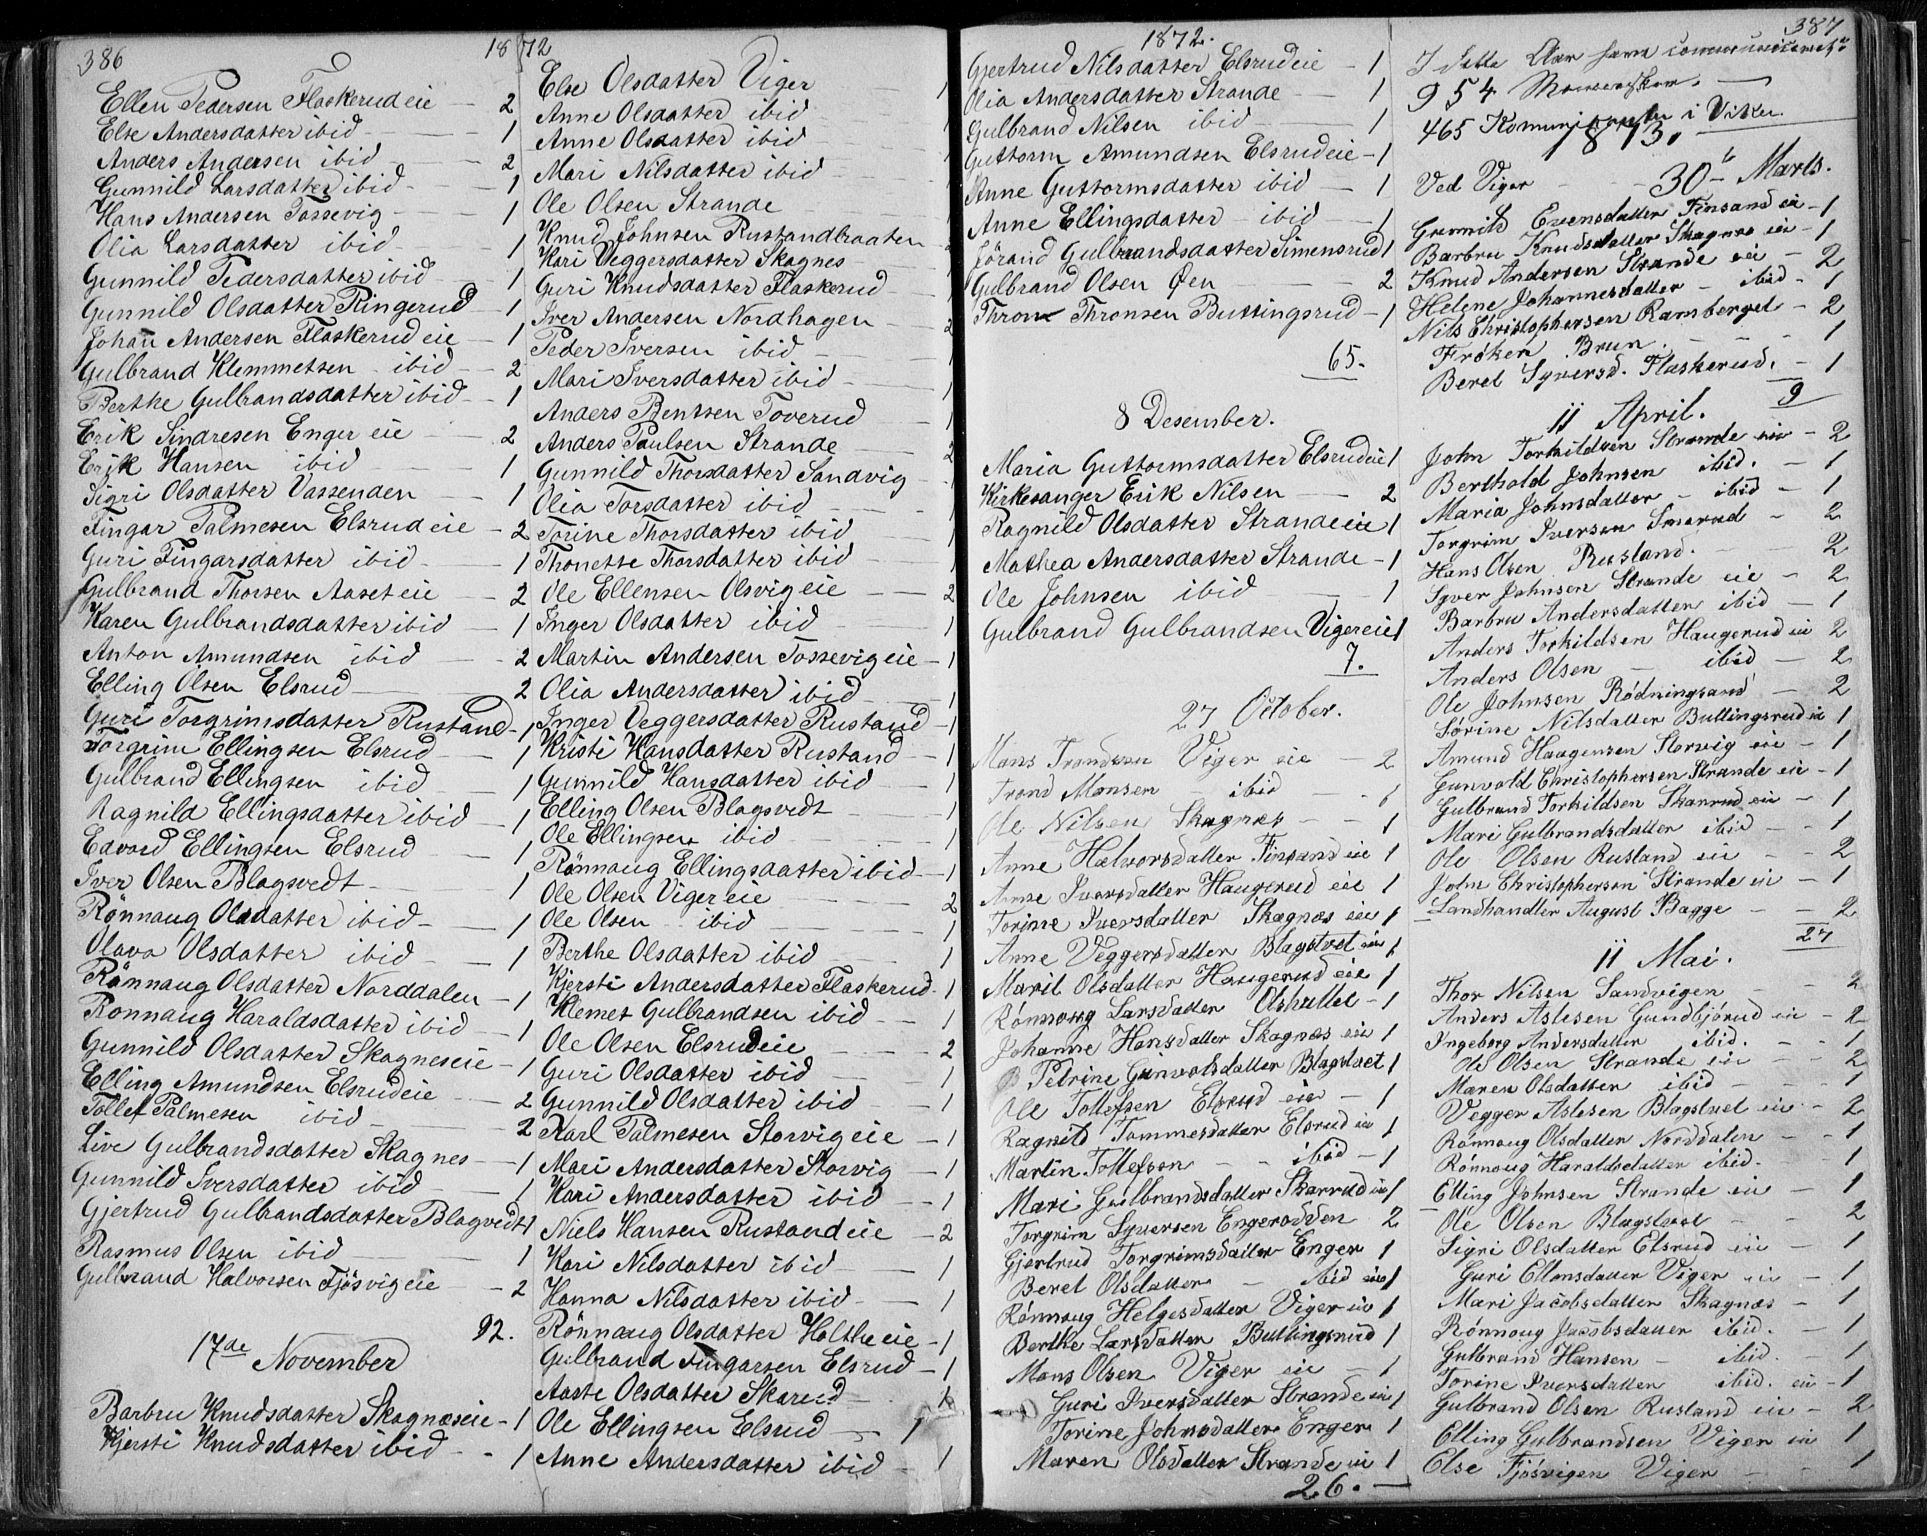 386
1872
Ellen Pedersen Flaskerud eie — 2
Else Andersdatter ibid — 1
Anders Andersen ibid — 2
Gunnild Larsdatter ibid — 1
Hans Andersen Tossevig — 1
Olia Larsdatter ibid — 1
Gunnild Pedersdatter ibid — 1
Gunnild Olsdatter Ringerud — 1
Johan Andersen Flaskerud eie — 1
Gulbrand Klemmetsen ibid — 2
Berthe Gulbrandsdatter ibid — 1
Erik Sindresen Enger eie — 2
Erik Hansen ibid — 1
Sigri Olsdatter Vassenden — 1
Fingar Palmesen Elsrud eie — 2
Guri Fingarsdatter ibid — 1
Gulbrand Thorsen Aaset eie — 2
Karen Gulbrandsdatter ibid — 1
Anton Amundsen ibid — 2
Elling Olsen Elsrud — 2
Guri Torgrimsdatter Rustand — 1
Torgrim Ellingsen Elsrud — 1
Gulbrand Ellingsen ibid — 1
Ragnild Ellingsdatter ibid — 1
Edvard Ellingsen Elsrud — 1
Iver Olsen Blagsvedt — 1
Rönnaug Olsdatter ibid — 1
Olava Olsdatter ibid — 1
Rönnaug Olsdatter Norddalen — 1
Ronnaug Haraldsdatter ibid — 1
Gunnild Olsdatter Skagneseie — 1
Elling Amundsen Elsrudeie — 2
Tollef Palmesen ibid — 2
Live Gulbrandsdatter Skagnes — 1
Gunnild Iversdatter ibid — 1
Gjertrud Gulbrandsdatter Blagvedt 1
Rasmus Olsen ibid — 1
Gulbrand Halvorsen Fjösvig eie — 2
92.
17de November
Barbru Knudsdatter Skagnæseie — 1
Kjersti Knudsdatter ibid — 1
Else Olsdatter Viger — 1
Anne Olsdatter ibid — 1
Anne Olsdatter ibid — 1
Mari Nilsdatter ibid — 1
Ole Olsen Strande
Knud Johnsen Rustandbraaten
Kari Veggersdatter Skagnes — 1
Guri Knudsdatter Flaskerud — 1
Iver Andersen Nordhagen — 2
Peder Iversen ibid — 1
Mari Iversdatter ibid — 1
Anders Bentsen Toverud — 1
Anders Paulsen Strande — 2
Gunnild Thorsdatter Sandvig — 1
Olia Torsdatter ibid — 1
Torine Thorsdatter ibid — 1
Thonette Thorsdatter ibid — 1
Ole Ellensen Olsvig eie — 2
Inger Olsdatter ibid — 1
Martin Andersen Tossevig eie — 1
Olia Andersdatter ibid — 1
Inger Veggersdatter Rustand — 1
Kristi Hansdatter Rustand — 1
Gunnild Hansdatter ibid — 1
Elling Olsen Blagsvedt — 1
Ole Ellingsen ibid — 1
Rönnaug Ellingsdatter ibid — 1
Ole Olsen Viger eie — 2
Ole Olsen ibid — 1
Berthe Olsdatter ibid — 1
Kjersti Andersdatter Flaskerud — 1
Klemet Gulbrandsen ibid — 1
Ole Olsen Elsrudeie — 2
Guri Olsdatter ibid — 1
Gunnild Olsdatter ibid — 1
Karl Palmesen Storvig eie — 1
Mari Andersdatter Storvig — 1
Kari Andersdatter ibid — 1
Niels Hansen Rustand eie — 2
Kari Nilsdatter ibid — 1
Hanna Nilsdatter ibid — 1
Rönnaug Olsdatter Holthe eie — 1
Gulbrand Fingarsen Elsrud — 1
Aaste Olsdatter Skarud
Ole Ellingsen Elsrud — 1
Anne Andersdatter ibid — 1
1872.
387
Gjertrud Nilsdatter Elsrudeie — 1
Olia Andersdatter Strande — 1
Gulbrand Nilsen ibid — 1
Guttorm Amundsen Elsrudeie — 1
Anne Guttormsdatter ibid — 1
Anne Ellingsdatter ibid — 1
Jörand Gulbrandsdatter Simensrud 1
Gulbrand Olsen Øen — 2
Thron Thronsen Buttingsrud — 1
65.
8 Desember.
Maria Guttormsdatter Elsrudeie 1
Kirkesanger Erik Nilsen — 2
Ragnild Olsdatter Strandeeie 1
Mathea Andersdatter Strande — 1
Ole Johnsen ibid — 1
Gulbrand Gulbrandsen Vigereie 1
7.
27 October.
Mons Trondsen Viger eie — 2
Trond Monsen ibid — 1
Ole Nilsen Skagnæs — 1
Anne Halvorsdatter Finsand eie 1
Anne Iversdatter Haugerud eie 1
Torine Iversdatter Skagnæs eie 1
Anne Veggersdatter Blagstvet eie 1
Marit Olsdatter Haugerud eie 1
Rønnoug Larsdatter Olshullet — 1
Johanne Hansdatter Skagnæs eie 1
Petrine Gunvolsdatter Blagstvet 1
Ole Tollefsen Elsrud eie — 1
Ragnild Tommesdatter Elsrud eie 1
Martin Tollefsen — ibid — 1
Mari Gulbrandsdatter Skarrud eie 1
Torgrim Syversen Engerodden 2
Gjertrud Torgrimsdatter Enger 1
Beret Olsdatter — ibid eie 1
Rønnoug Helgesdatter Viger eie 1
Berthe Larsdatter Buttingsrud 1
Mons Olsen Viger eie — 1
Guri Iversdatter Strande eie 1
Torine Johnsdatter Enger 1
Maren Olsdatter Strande eie 1
26. —
I dette Aar have communiceret
954 Mennesker. —
465 Komunikanter i Viker
1873.
Ved Viger — 30te Marts.
Gunnild Evensdatter Finsand eie — 1
Barbru Knudsdatter Skagnæs eie — 1
Knud Andersen Strande eie — 2
Helene Johannesdatter — ibid — 1
Nils Christophersen Ramberget — 2
Frøken Brun — 1
Beret Syversd. Flaskerud. — 1
9
11 April.
John Torkildsen Strande eie — 2
Berthold Johnsen ibid. — 1
Maria Johnsdatter — ibid — 1
Torgrim Iversen Smerud — 2
Hans Olsen Rusland. — 2
Syver Johnsen Strande eie — 2
Barbru Andersdatter ibid — 1
Anders Torkildsen Haugerud eie 2
Anders Olsen — ibid — 2
Ole Johnsen Rødningsand — 2
Sørine Nilsdatter Buttingsrud eie 1
Amund Haagensen Storvig eie — 1
Gunvold Christophersen Strande eie — 1
Gulbrand Torkildsen Skarrud eie — 1
Mari Gulbrandsdatter ibid — 1
Ole Olsen Rusland eie — 2
John Christophersen Strande eie — 1
Landhandler August Bagge — 2
27
11 Mai.
Thor Nilsen Sandvigen — 2
Anders Aslesen Gundbjørud eie — 2
Ingeborg Andersdatter ibid. — 1
Ole Olsen Strande eie — 2
Maren Olsdatter ibid — 1
Vegger Aslesen Blagstvet eie — 2
Rønnoug Olsdatter Norddalen — 1
Rønnoug Haraldsdatter ibid. — 1
Elling Johnsen Strande eie — 1
Ole Olsen Blagstvet — 2
Sigri Olsdatter Elsrud eie — 1
Guri Ellensdatter Viger eie — 1
Mari Jacobsdatter Skagnæs — 1
Rønnoug Jacobsdatter ibid. — 1
Gulbrand Hansen — ibid. 1
Torine Iversdatter ibid. eie — 1
Gulbrand Olsen Rusland eie — 2
Elling Gulbrandsen Viger eie 1
Else Fjøsvigen Viger — 1